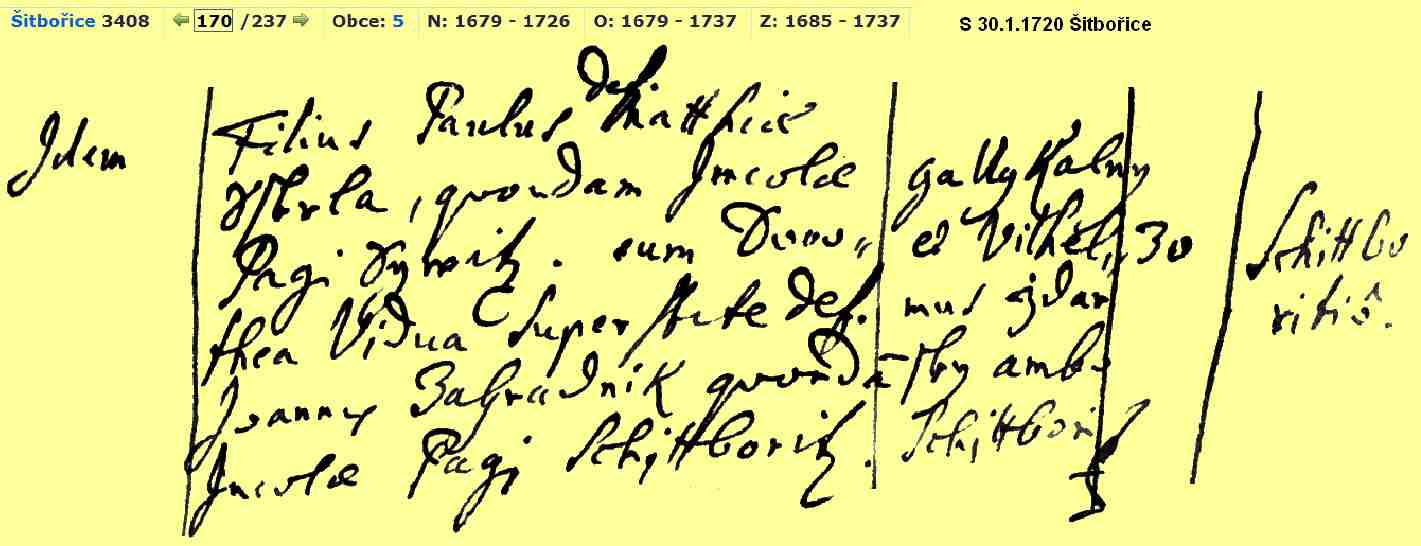 Šitbořice 3408 170 /237 Obce: 5 N: 1679 - 1726 O: 1679 - 1737 Z: 1685 - 1737 S 30.1.1720 Šitbořice
Idem
Filius Paulus def. Matthiæ
quondam Incolæ
Pagi cum Doro„
thea Vidua Superstite def.
Joannis Zahradnik quondā
Incolæ Pagi Schittboritz.
Gally Kalny
et Vilhel„
mus
amb.
Schittboritz
30
Schittbo
ritiô.